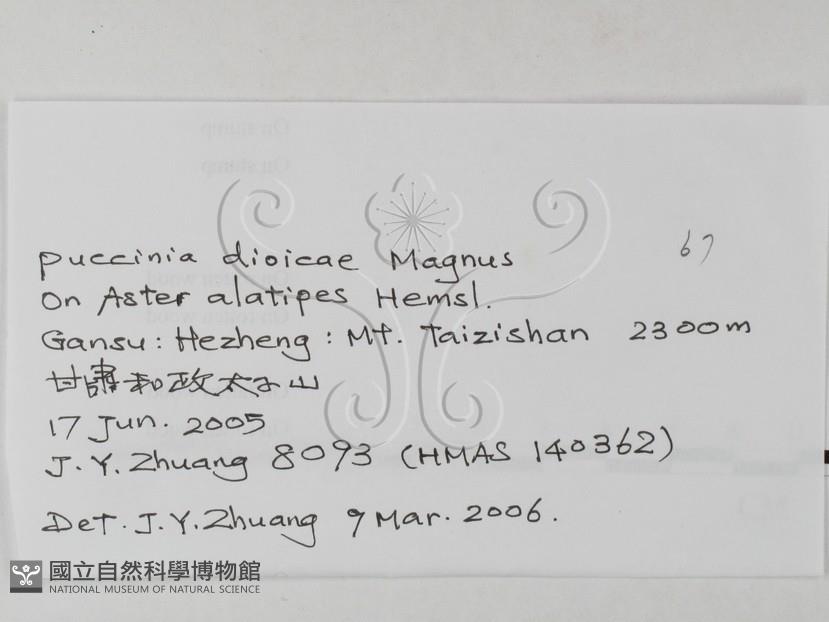 67
puccinia dioicae Magnus
on Aster alatipes Hemsl.
Gansu: Hezheng: Mt. Taizishan 2300m
甘肅和政太子山
17 Jun. 2005
J. Y. Zhuang 8093 (HMAS 140362)
Det. J. Y. Zhuang 9 Mar. 2006.
國立自然科學博物館
NATIONAL MUSEUM OF NATURAL SCIENCE